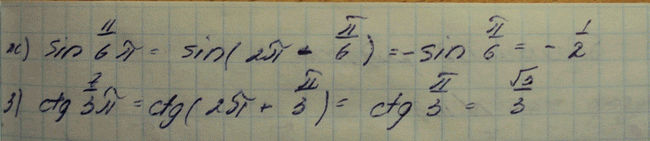 ж) sin 11/6 π = sin(2π - π/6) = -sin π/6 = - 1/2
з) ctg 7/3 π = ctg(2π + π/3) = ctg π/3 = √3/3